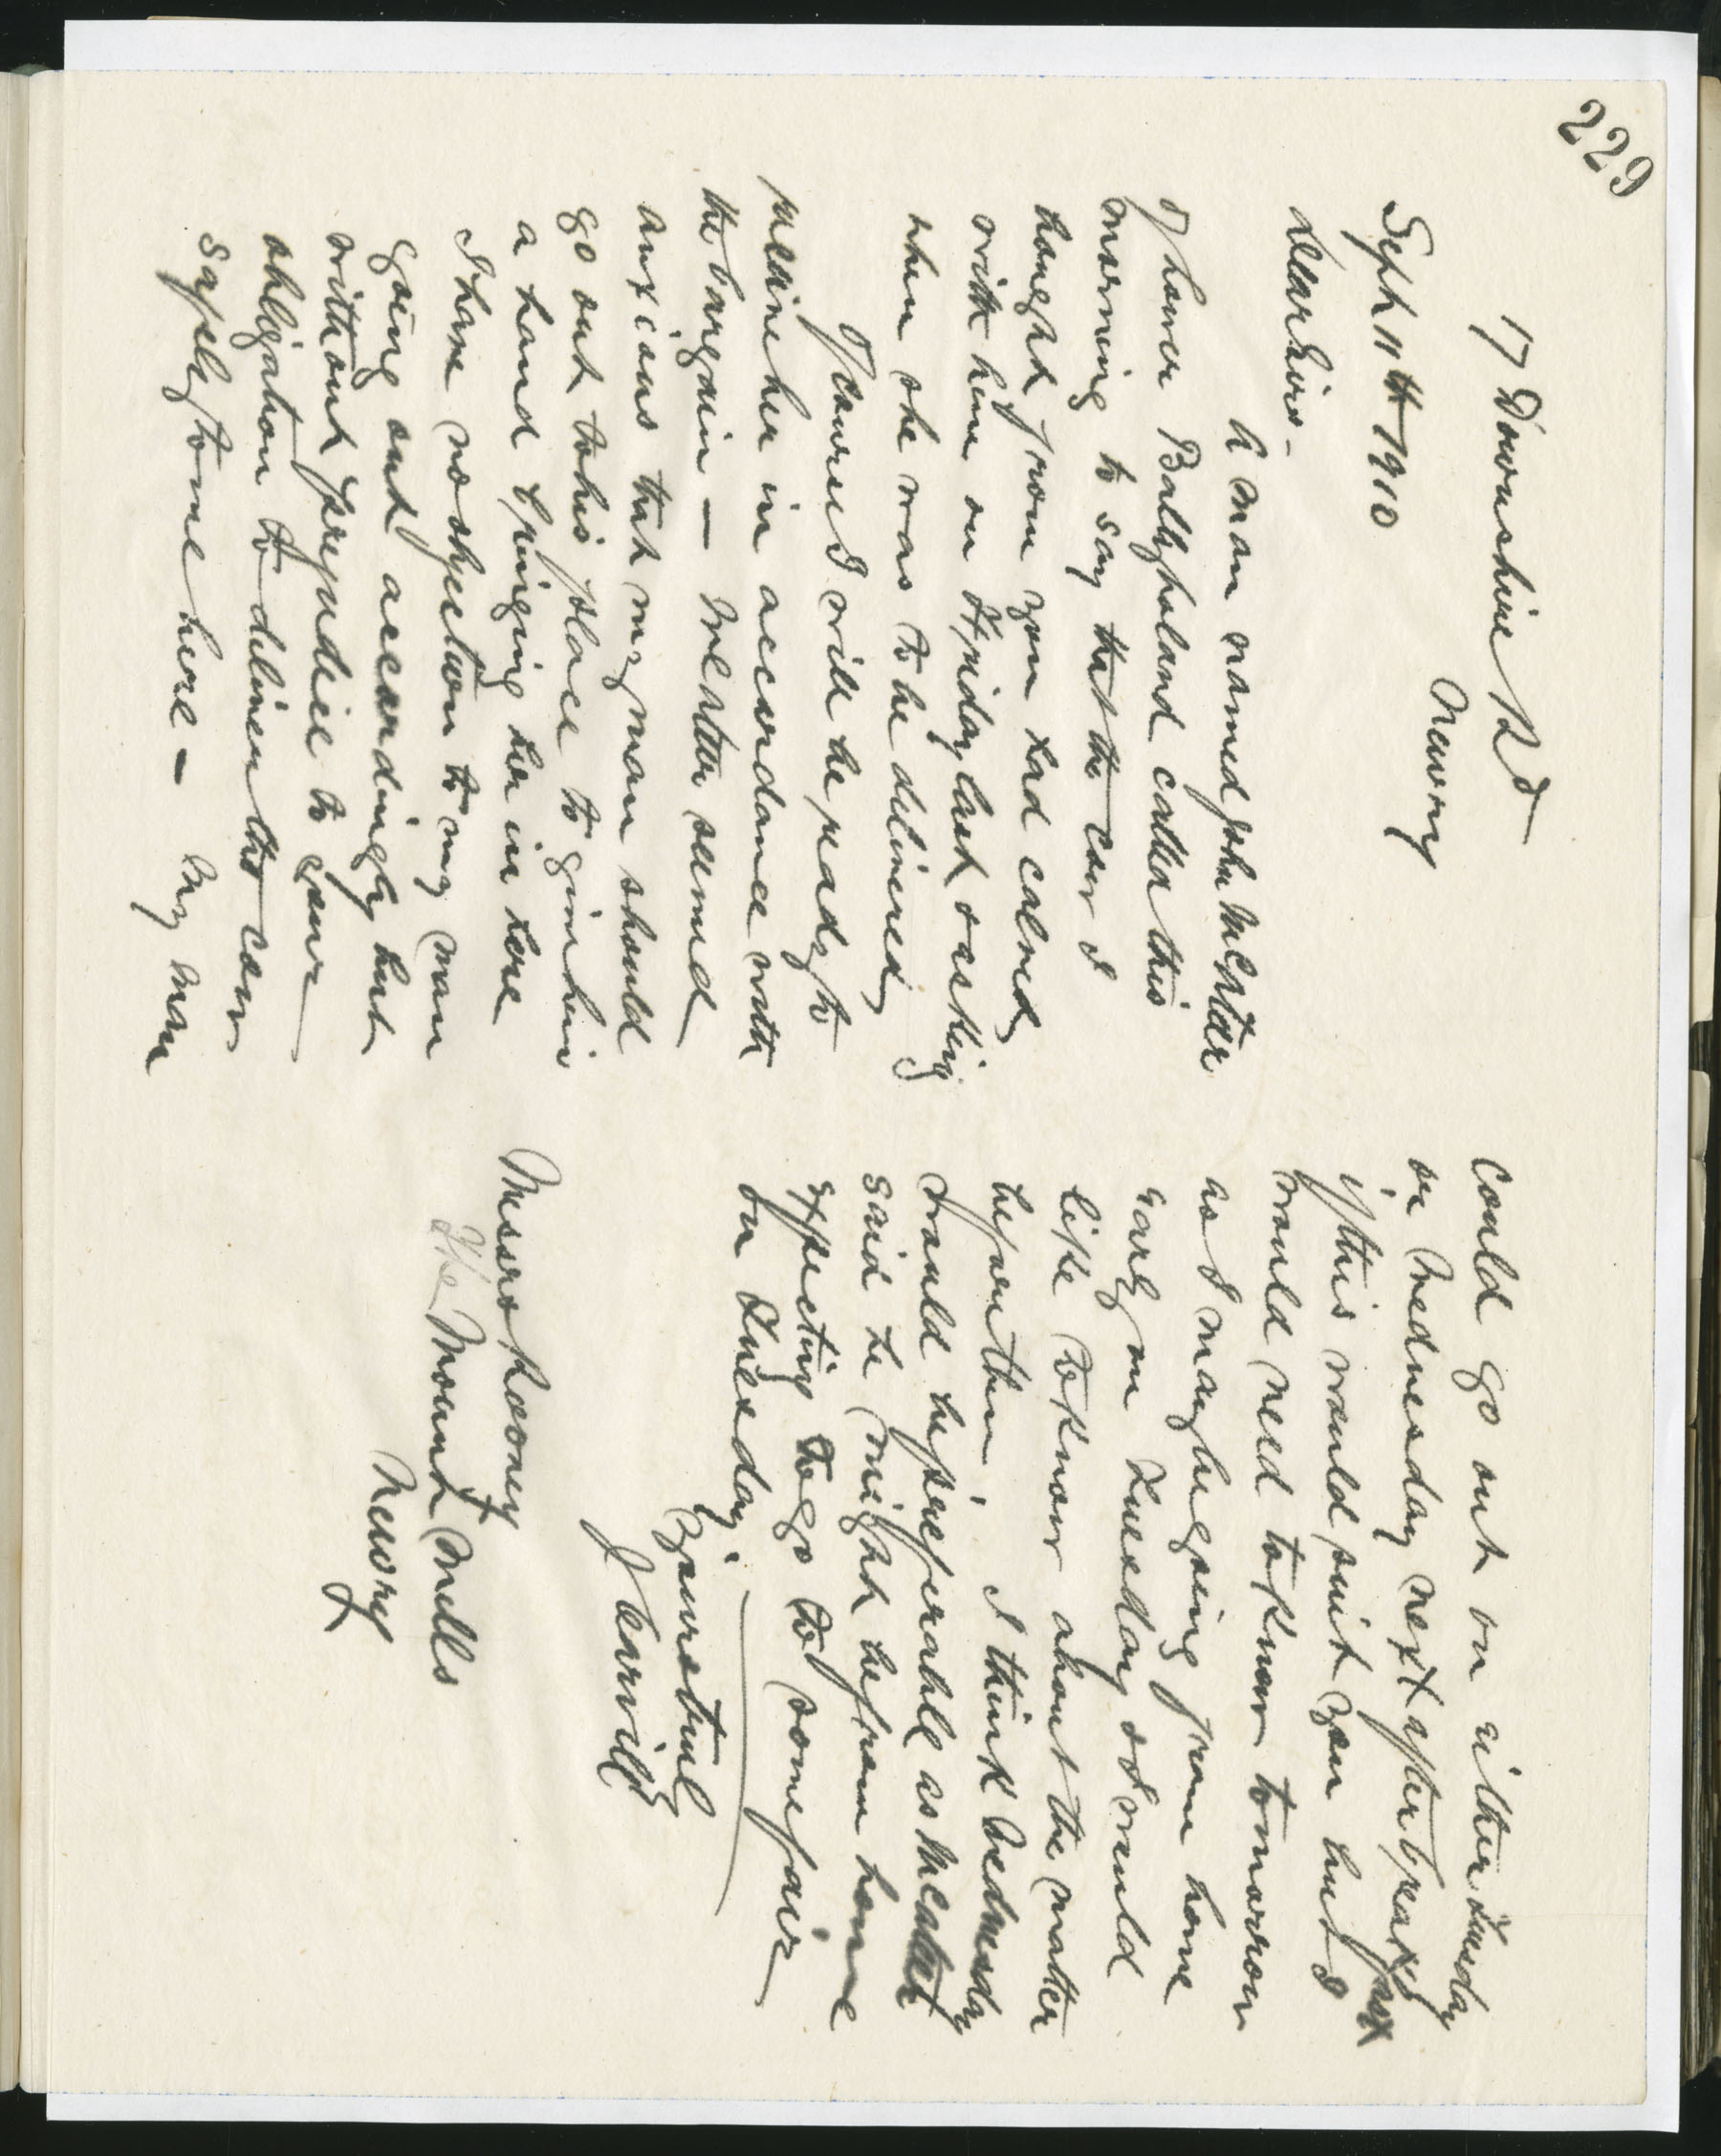 229
17 Downshire Rd
Newry
Sept 11th 1910
Dear Sirs -
A man named John McAteer
of lower Ballyholland called this
morning to say that the cow I
bought from you had calved
with him on Friday last & asking
when she was to be delivered
Of course I will be ready to
receive her in accordance with
the bargain - McAteer seemed
anxious that my man should
go out to his place to give him
a hand bringing her in here
I have no objection to my man
going out accordingly but
without prejudice to your
obligation to deliver the cow
safely to me here - My man
could go out on either Tuesday
or Wednesday next after breakfast
if this would suit you but I
would need to know tomorrow
as I may be going from home
early on Tuesday & I would
like to know about the matter
before then. I think Wednesday
would be preferable as McAteer
said he might be from home
expecting to go to some fair
on Tuesday.
Yours truly
J Carvill
Messrs Rooney
The Mount Mills
Newry